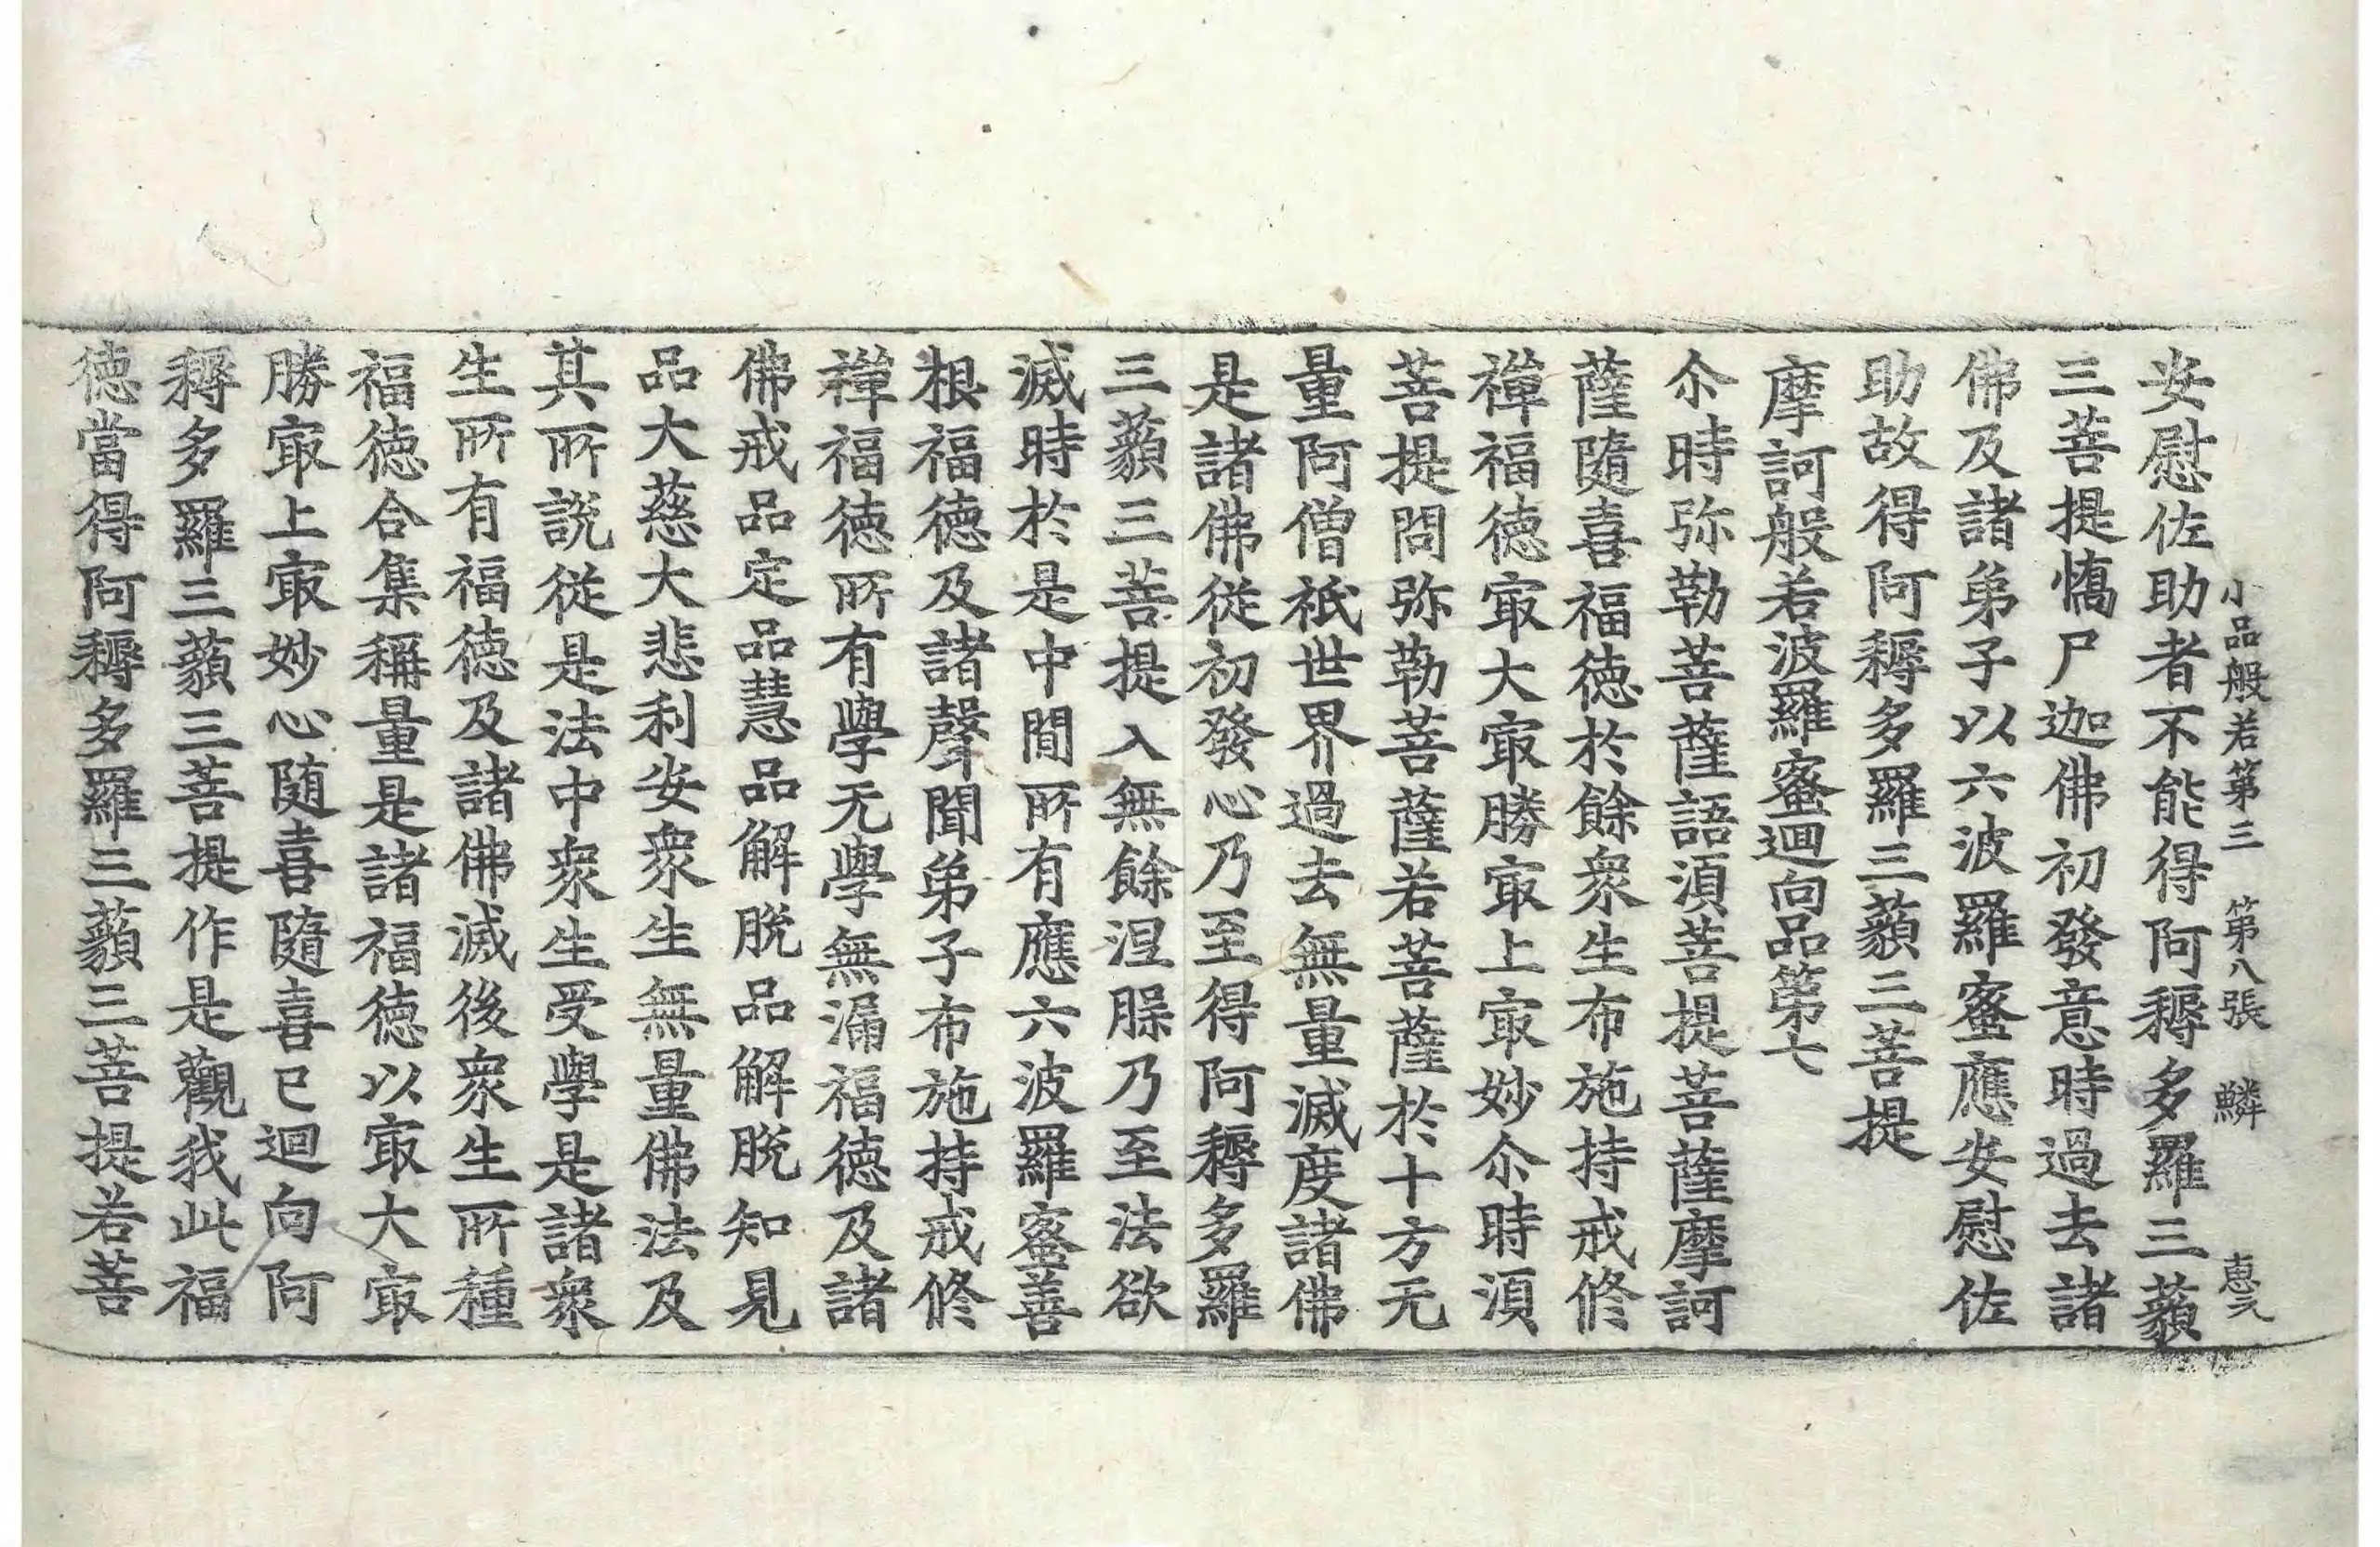 小品般若第三　第八張　鱗　惠元
安慰佐助者不能得阿耨多羅三藐
三菩提憍尸迦佛初發意時過去諸
佛及諸弟子以六波羅蜜應安慰佐
助故得阿耨多羅三藐三菩提
摩訶般若波羅蜜迴向品第七
尒時弥勒菩薩語湏菩提菩薩摩訶
薩隨喜福德於餘衆生布施持戒修
禪福德㝡大㝡勝㝡上㝡妙尒時湏
菩提問弥勒菩薩若菩薩於十方无
量阿僧祇世界過去無量滅度諸佛
是諸佛從初發心乃至得阿耨多羅
三藐三菩提入無餘涅槃乃至法欲
滅時於是中間所有應六波羅蜜善
根福德及諸聲聞弟子布施持戒修
禪福德所有學无學無漏福德及諸
佛戒品定品慧品解脫品解脫知見
品大慈大悲利安衆生無量佛法及
其所說從是法中衆生受學是諸衆
生所有福德及諸佛滅後衆生所種
福德合集稱量是諸福德以㝡大㝡
勝㝡上㝡妙心随喜隨喜已迴向阿
耨多羅三藐三菩提作是觀我此福
德當得阿耨多羅三藐三菩提若菩